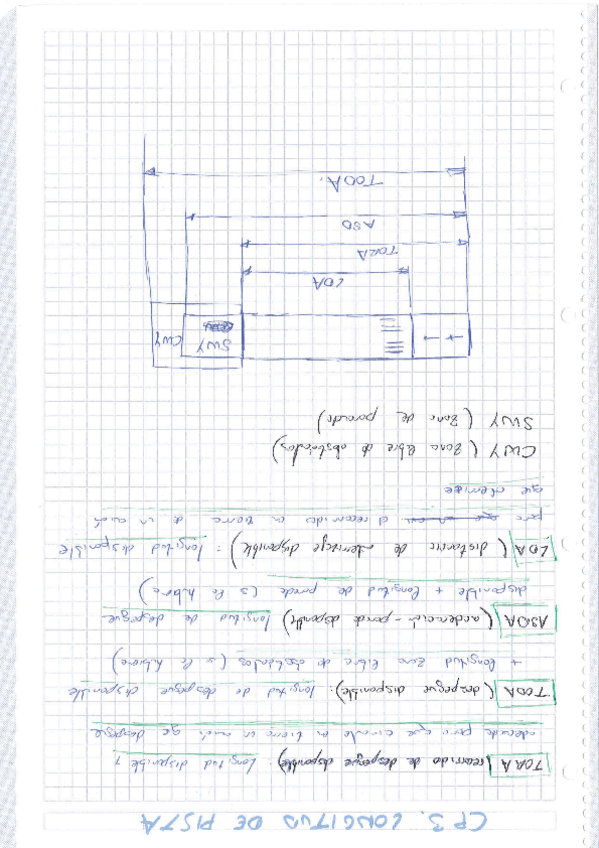 CP 3. LONGITUD DE PISTA
TORA (recorrido de despegue disponible): longitud disponible y
adecuada para que circule en tierra un avión que despegue
TODA (despegue disponible): longitud de despegue disponible
+ longitud zona libre de obstáculos (si la hubiera)
ASDA (aceleración-parada disponible) longitud de despegue
disponible + longitud de parada (si la hubiera)
LDA (distancia de aterrizaje disponible): longitud disponible
para el recorrido en tierra de un avión
que aterrice
CWY (zona libre de obstáculos)
SWY (zona de parada)
SWY CWY
LDA
TORA
ASD
TODA.